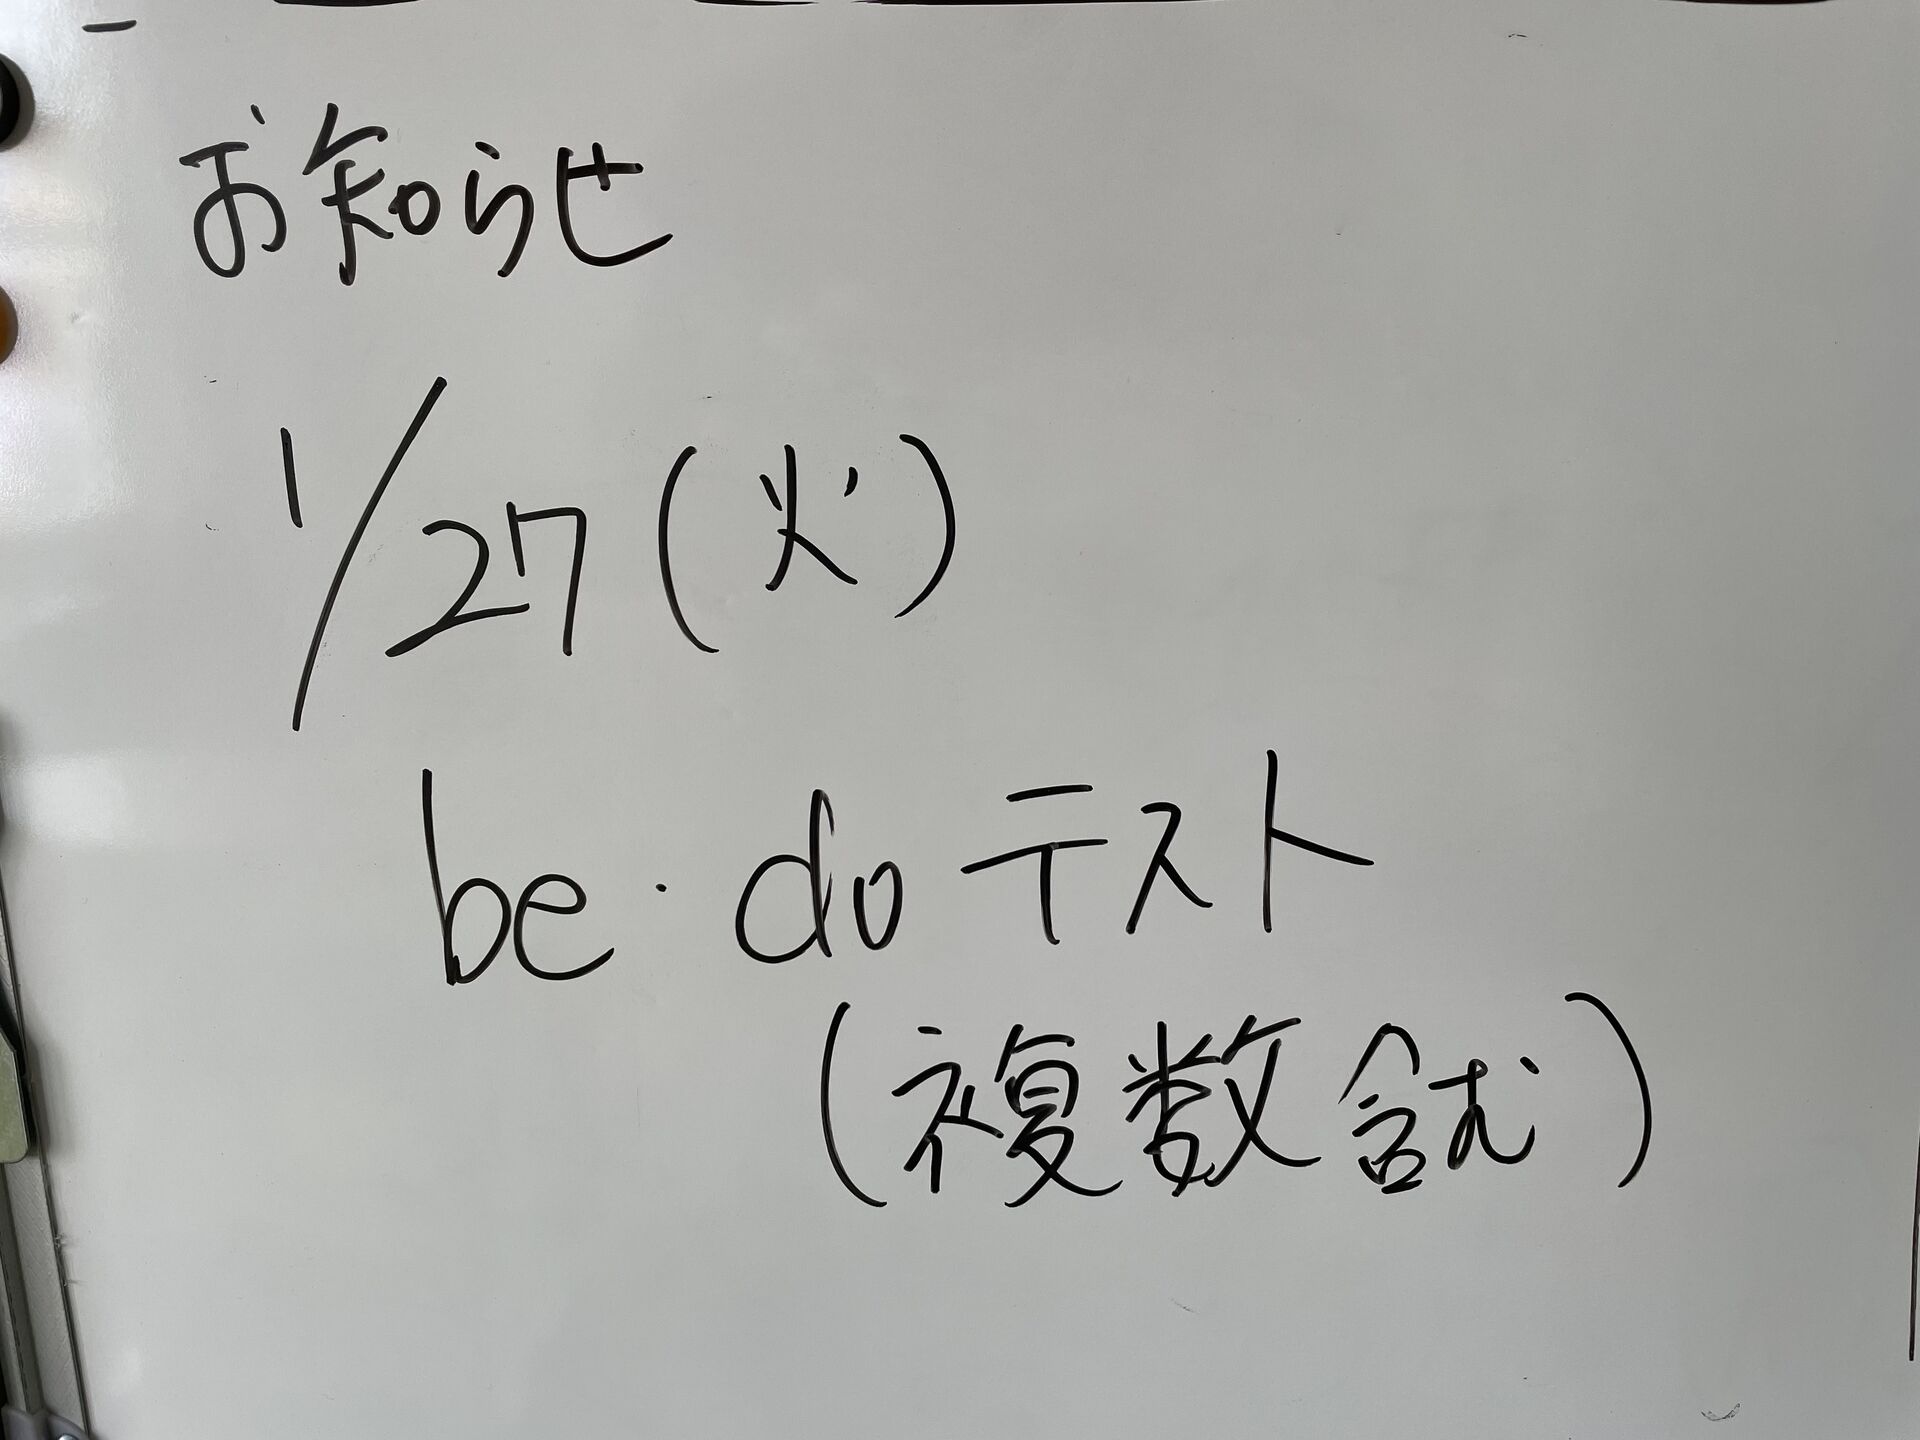 お知らせ
1/27(火)
be・doテスト
(複数含む)